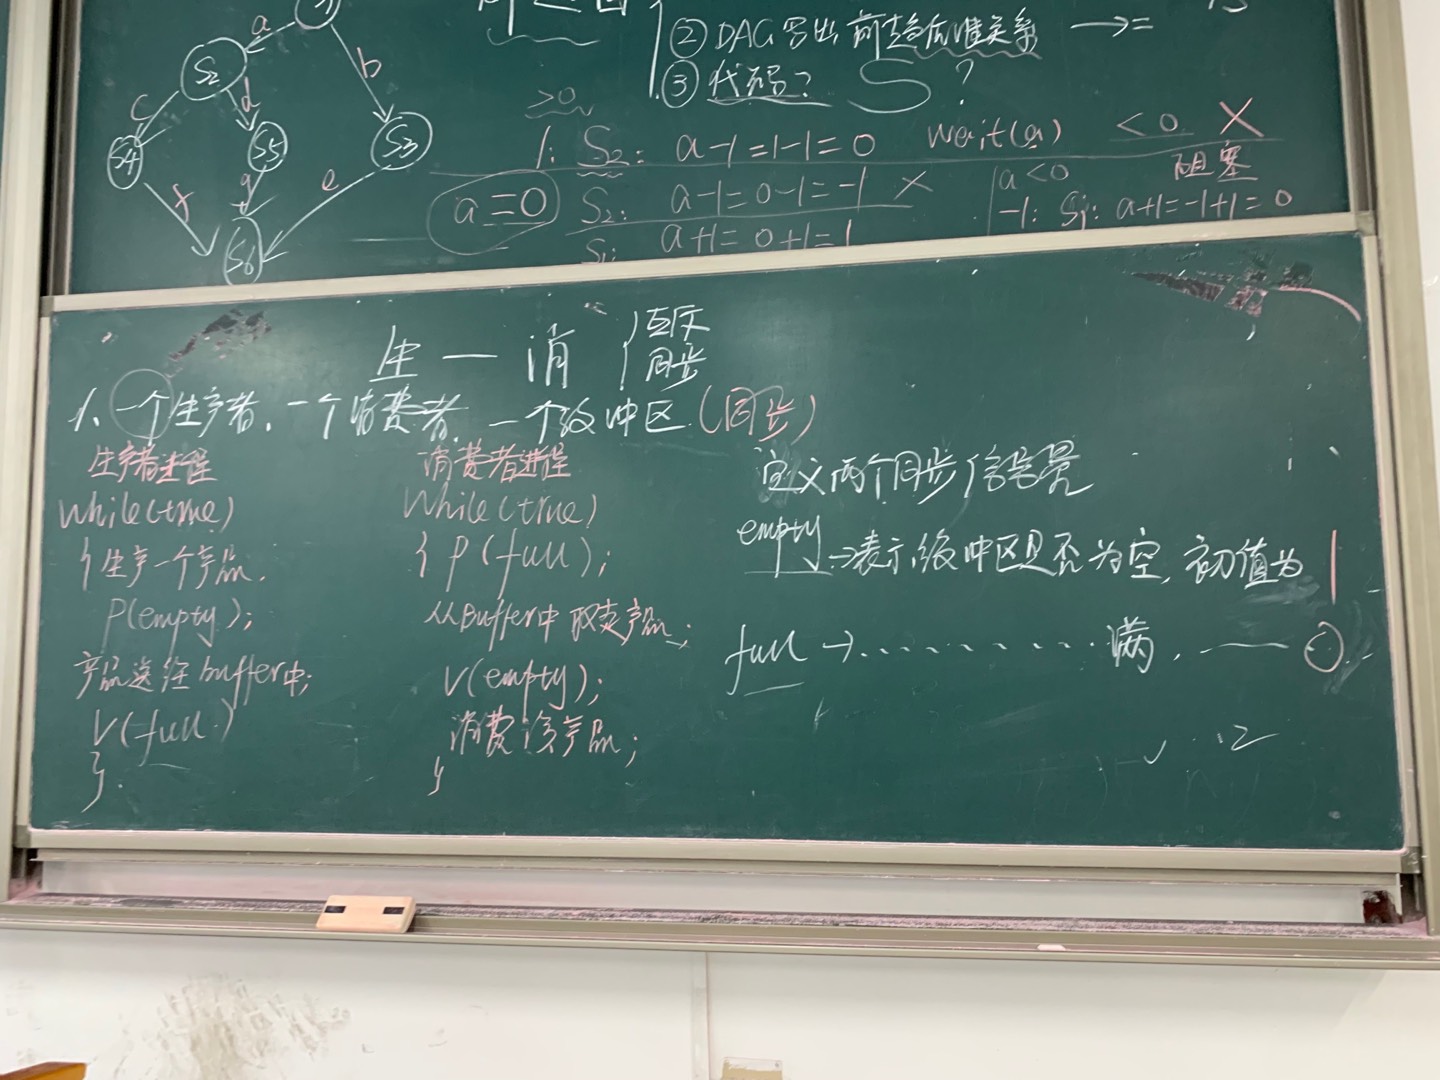 a
b
S2
c
d
S4
S5
S3
f
g
e
S6
② DAG写出前趋后继关系 → =
③ 代码? S ?
>0
1: S2: a-1=1-1=0 wait(a) <0 X
a=0 S2: a-1=0-1=-1 × a<0 阻塞
S1: a+1=0+1=1 -1: S1: a+1=-1+1=0
生一消 { 互斥
同步
1、一个生产者、一个消费者、一个缓冲区 (同步)
生产者进程
while(true)
{ 生产一个产品.
P(empty);
产品送往buffer中;
V(full.)
}.
消费者进程
While(true)
{ P(full);
从Buffer中取走产品;
V(empty);
消费该产品;
}
定义两个同步信号量
empty→表示缓冲区是否为空, 初值为1
full →.......... 满, —— 0.